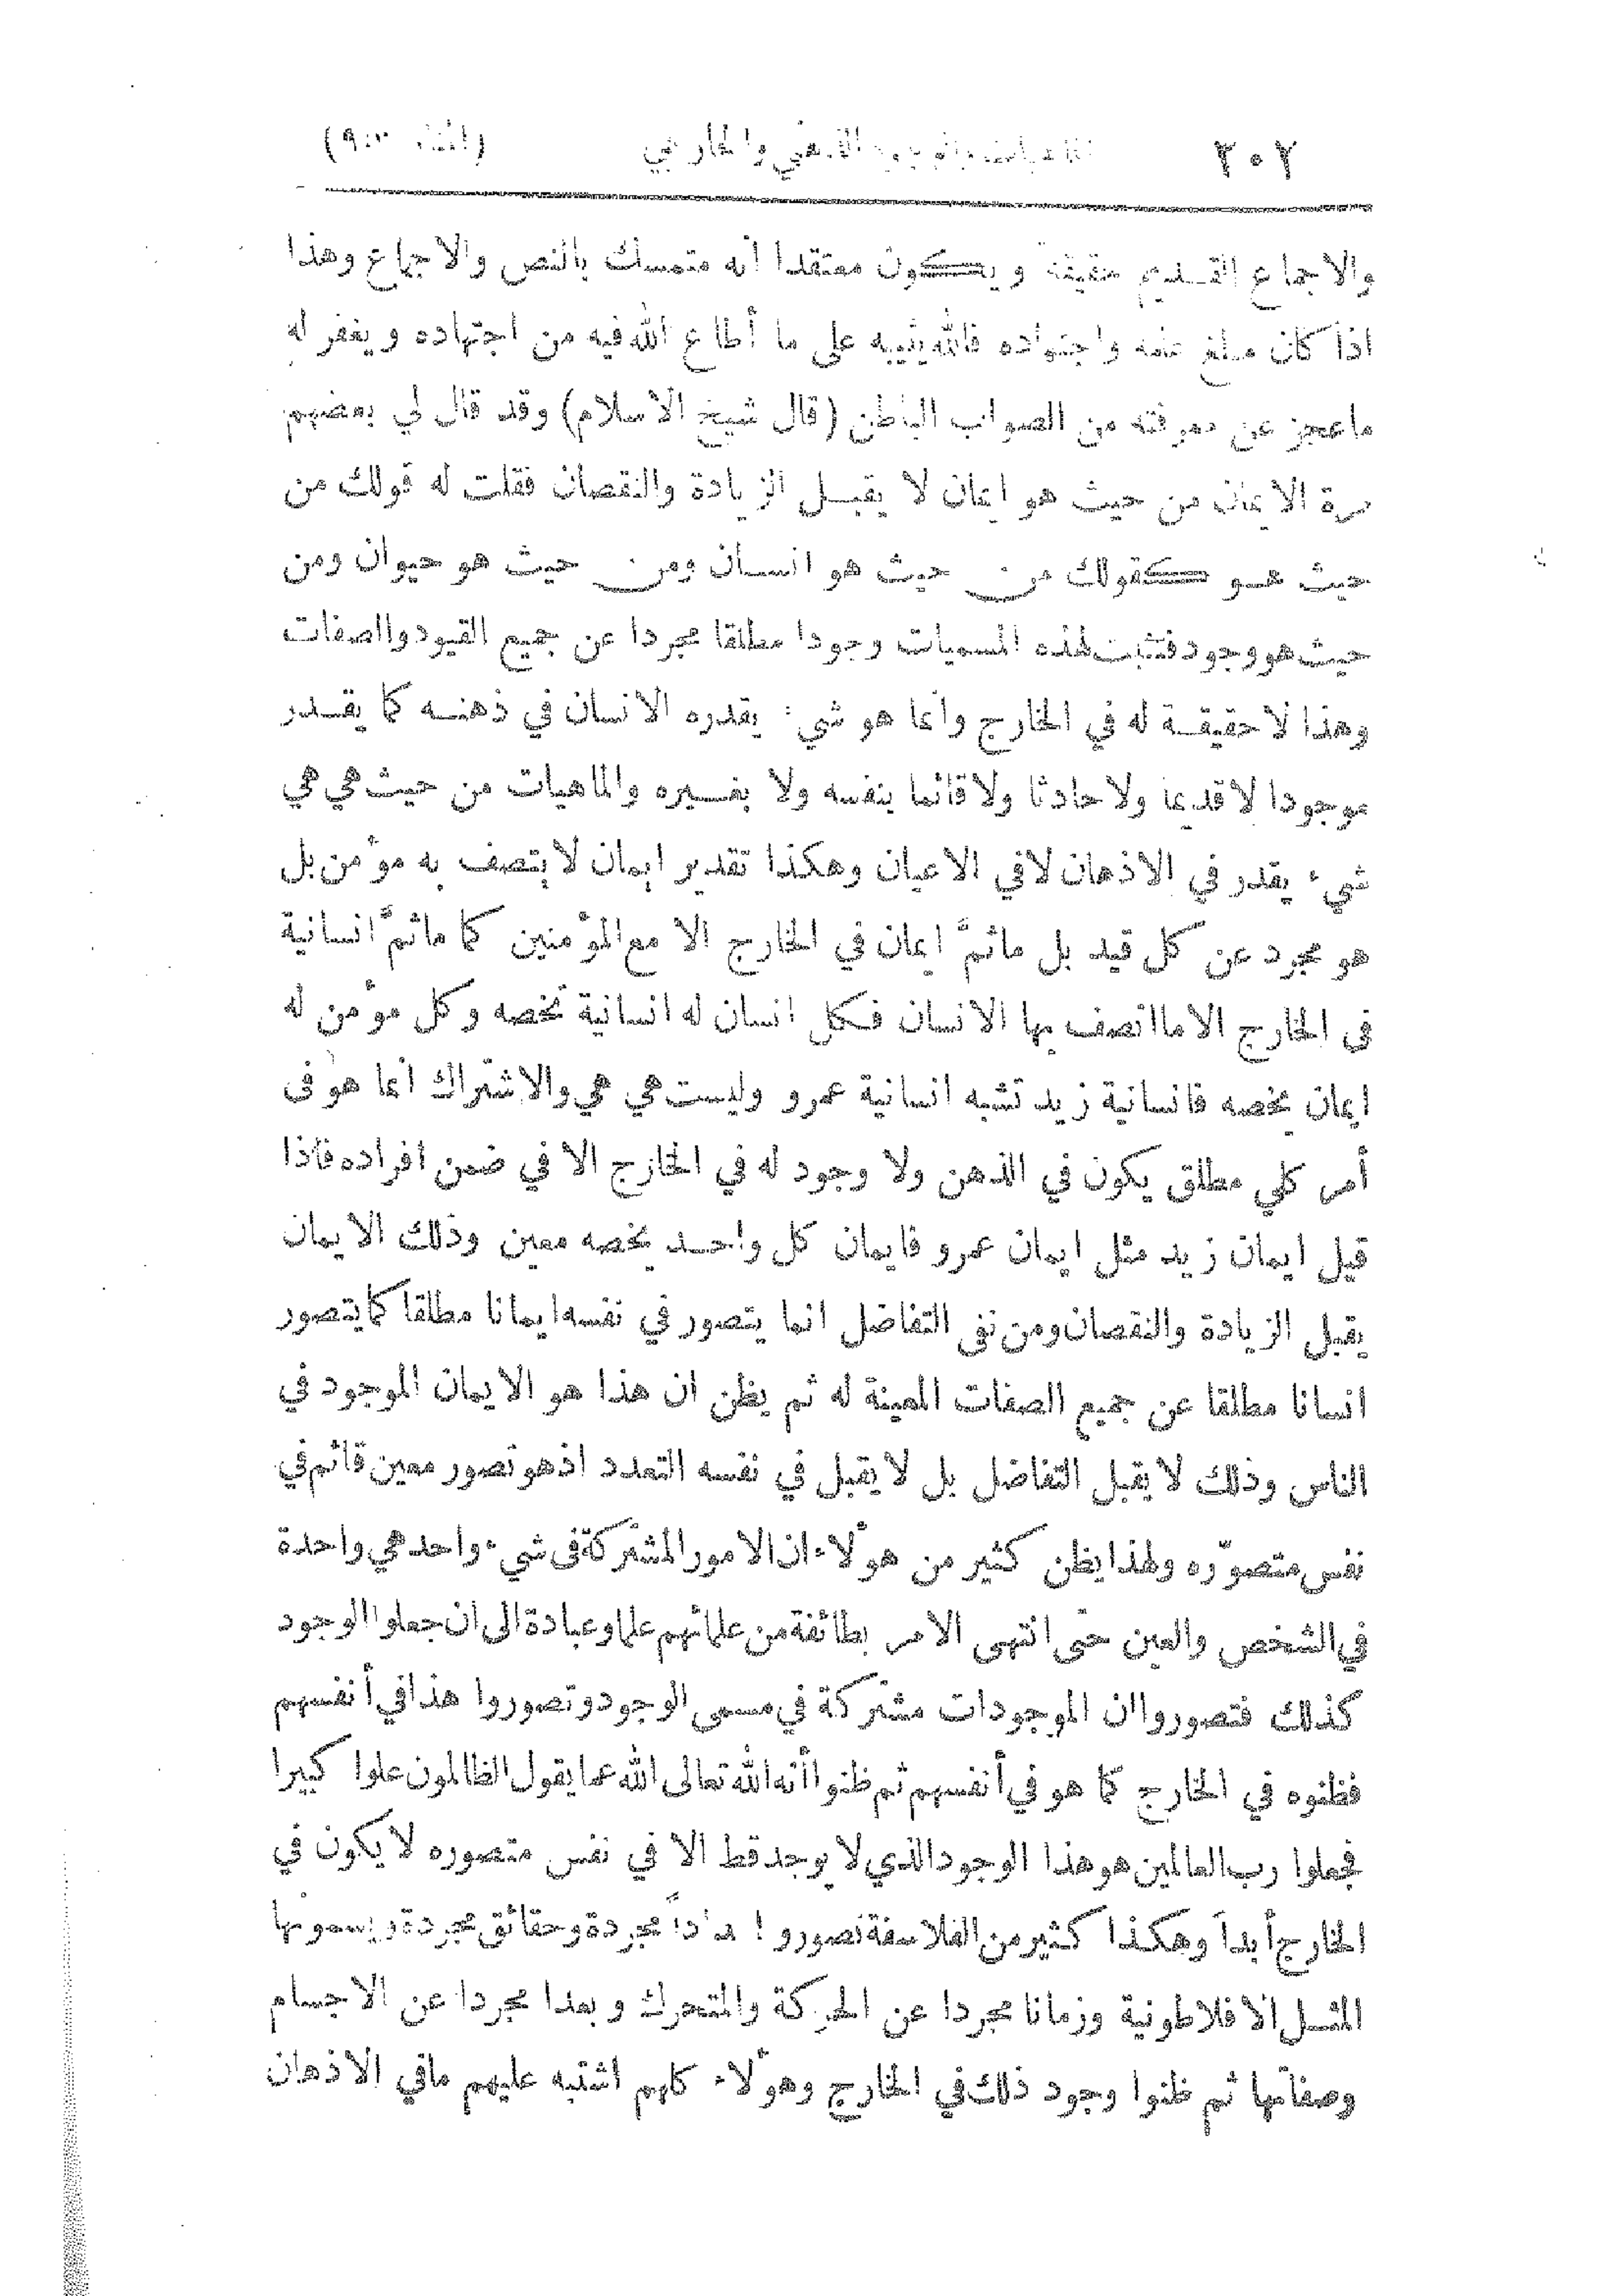 ٣٠٢ الذهني والخارجي
والاجماع القديم حقيقة ويكون معتقدا أنه متمسك بالنص والاجماع وهذا
اذا كان مبلغ علمه واجتهاده فالله يثيبه على ما أطاع الله فيه من اجتهاده ويغفر له
ماعجز عن معرفته من الصواب الباطن (قال شيخ الاسلام) وقد قال لي بعضهم
مرة الايمان من حيث هو ايمان لا يقبل الزيادة والنقصان فقلت له قولك من
حيث هو كقولك من حيث هو انسان ومن حيث هو حيوان ومن
حيث هو وجود فتثبت لهذه المسميات وجودا مطلقا مجردا عن جميع القيود والصفات
وهذا لا حقيقة له في الخارج وانما هو شيء يقدره الانسان في ذهنه كما يقدر
موجودا لا قديما ولا حادثا ولا قائما بنفسه ولا بغيره والماهيات من حيث هي هي
شيء يقدر في الاذهان لا في الاعيان وهكذا تقدير ايمان لا يتصف به مؤمن بل
هو مجرد عن كل قيد بل ماثمَّ ايمان في الخارج الا مع المؤمنين كما ماثمَّ انسانية
في الخارج الا ما اتصف بها الانسان فكل انسان له انسانية تخصه وكل مؤمن له
ايمان يخصه فانسانية زيد تشبه انسانية عمرو وليست هي هي والاشتراك انما هو في
أمر كلي مطلق يكون في الذهن ولا وجود له في الخارج الا في ضمن افراده فاذا
قيل ايمان زيد مثل ايمان عمرو فايمان كل واحد يخصه معين وذلك الايمان
يقبل الزيادة والنقصان ومن نفى التفاضل انما يتصور في نفسه ايمانا مطلقا كما يتصور
انسانا مطلقا عن جميع الصفات المعينة له ثم يظن ان هذا هو الايمان الموجود في
الناس وذلك لا يقبل التفاضل بل لا يقبل في نفسه التعدد اذ هو تصور معين قائم في
نفس متصوّره ولهذا يظن كثير من هؤلاء ان الامور المشتركة في شيء واحد هي واحدة
في الشخص والعين حتى انتهى الامر بطائفة من علمائهم علما وعبادة الى ان جعلوا الوجود
كذلك فتصوروا ان الموجودات مشتركة في مسمى الوجود وتصوروا هذا في أنفسهم
فظنوه في الخارج كما هو في أنفسهم ثم ظنوا أنه الله تعالى الله عما يقول الظالمون علوا كبيرا
فجعلوا رب العالمين هو هذا الوجود الذي لا يوجد قط الا في نفس متصوره لا يكون في
الخارج أبداً وهكذا كثير من الفلاسفة تصوروا مجردة وحقائق مجردة ويسمونها
المثل الافلاطونية وزمانا مجردا عن الحركة والمتحرك وبعدا مجردا عن الاجسام
وصفاتها ثم ظنوا وجود ذلك في الخارج وهؤلاء كلهم اشتبه عليهم مافي الاذهان